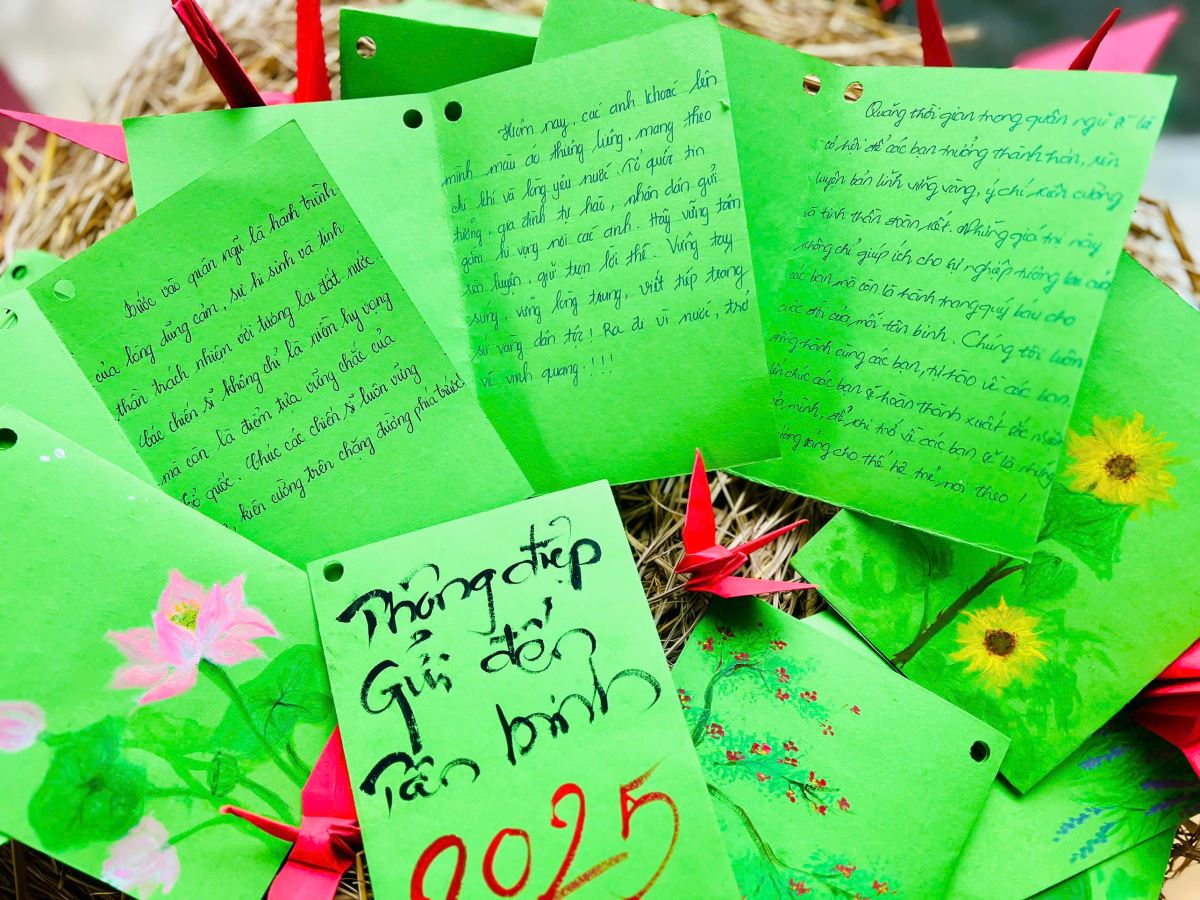 Bước vào quân ngũ là hành trình
của lòng dũng cảm, sự hi sinh và tinh
thần trách nhiệm với tương lai đất nước.
Các chiến sĩ không chỉ là niềm hy vọng
mà còn là điểm tựa vững chắc của
Tổ quốc. Chúc các chiến sĩ luôn vững
, kiên cường trên chặng đường phía trước!
Hôm nay, các anh khoác lên
mình màu áo thiêng liêng, mang theo
chí khí và lòng yêu nước. Tổ quốc tin
tưởng, gia đình tự hào, nhân dân gửi
gắm hi vọng nơi các anh. Hãy vững tâm
rèn luyện, giữ trọn lời thề. Vững tay
súng, vững lòng trung, viết tiếp trang
sử vàng dân tộc! Ra đi vì nước, trở
về vinh quang!!!!
Quãng thời gian trong quân ngũ sẽ là
cơ hội để các bạn trưởng thành hơn, rèn
luyện bản lĩnh vững vàng, ý chí kiên cường
và tinh thần đoàn kết. Những giá trị này
không chỉ giúp ích cho sự nghiệp tương lai của
các bạn, mà còn là hành trang quý báu cho
cuộc đời của mỗi tân binh. Chúng tôi luôn
đồng hành cùng các bạn, tự hào về các bạn
chúc các bạn sẽ hoàn thành xuất sắc nhiệm
mình, để khi trở về các bạn sẽ là những
sáng cho thế hệ trẻ noi theo!
Thông điệp
Gửi đến
Tân binh
2025